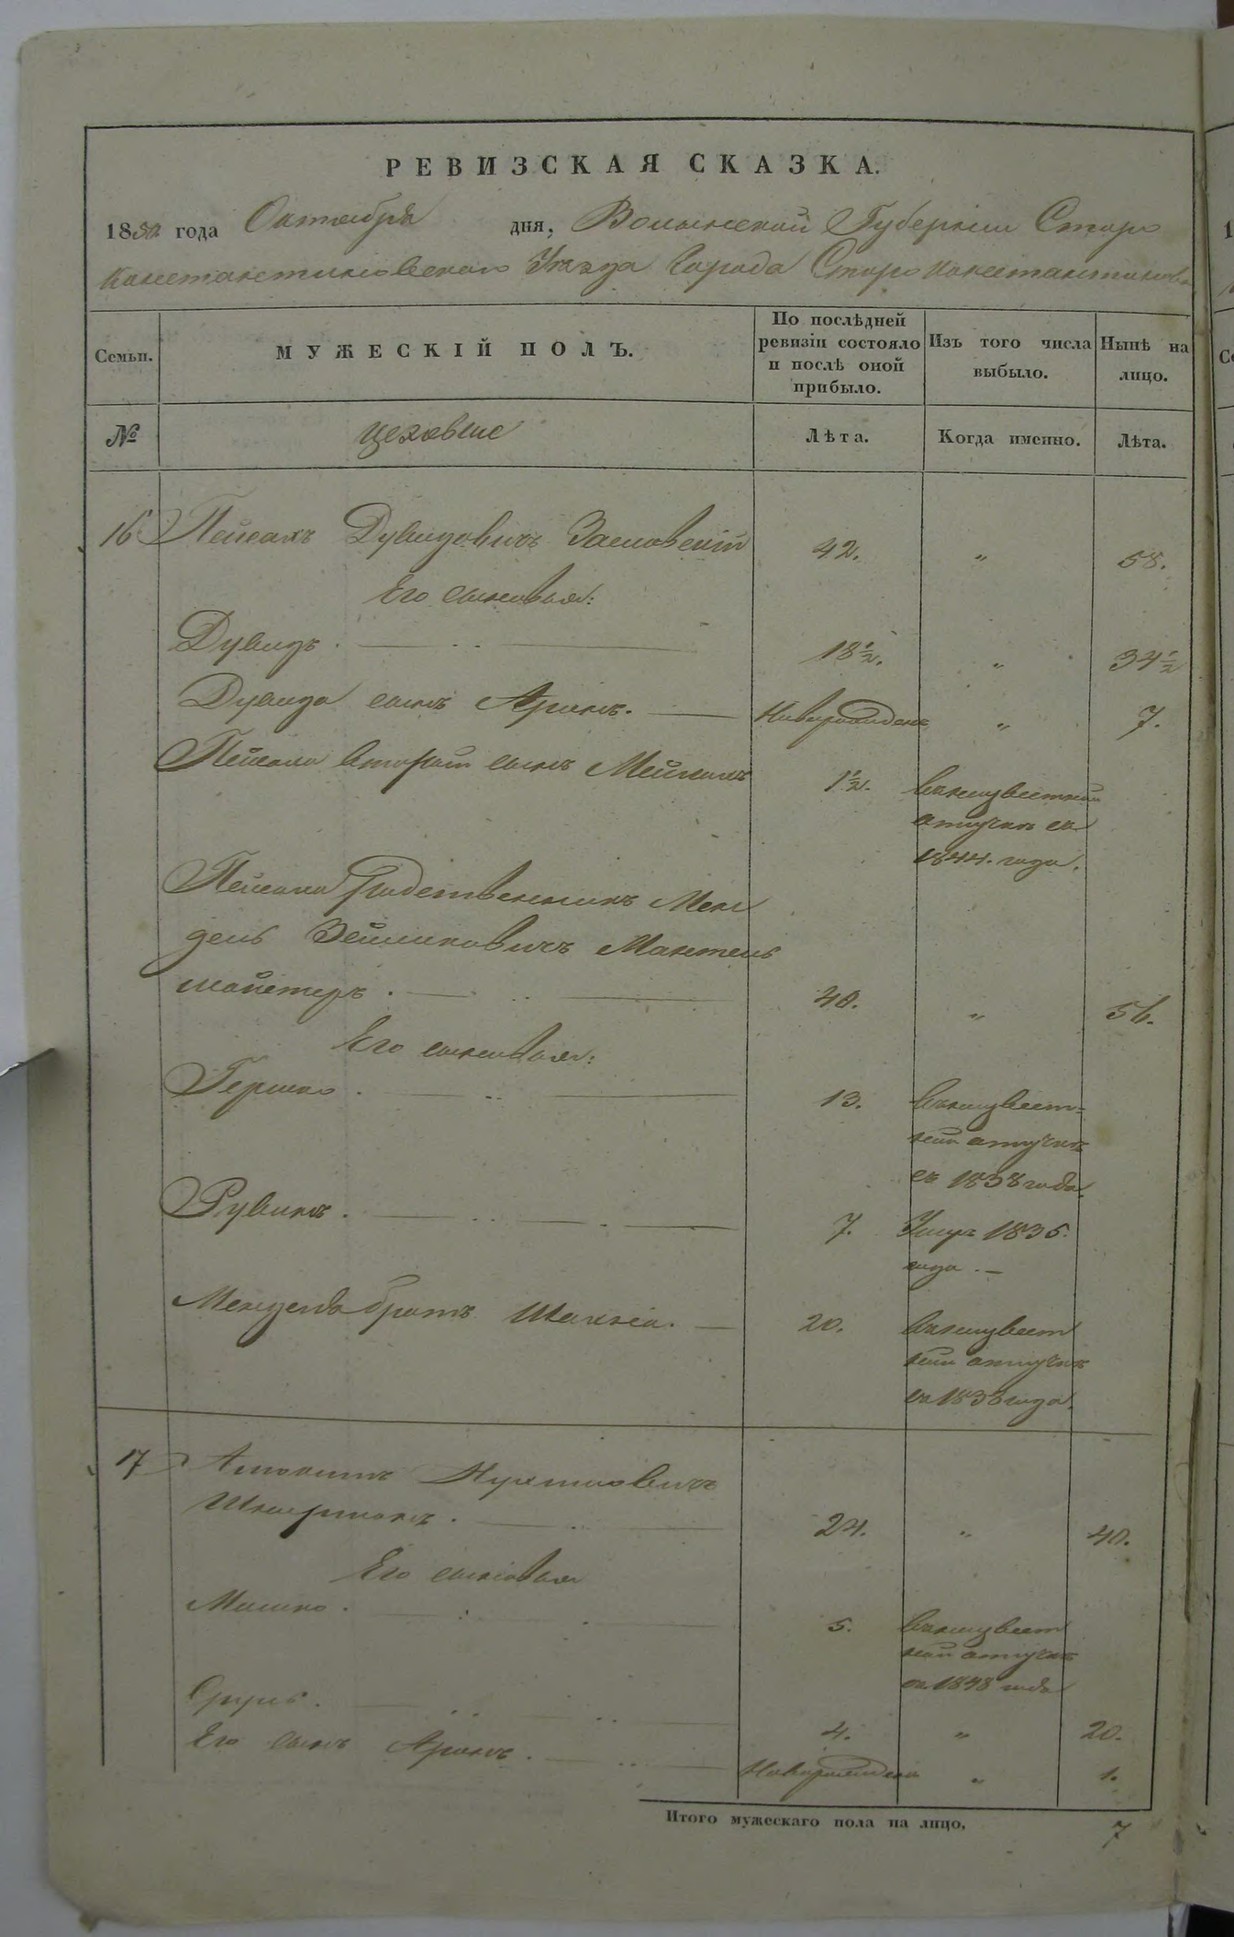 РЕВИЗСКАЯ СКАЗКА.
1850 года Октября дня, Волынской Губернии Старо
константиновского Уезда Города Старо константинова
Семьи. МУЖЕСКІЙ ПОЛЪ. По послѣдней ревизіи состояло и послѣ оной прибыло. Изъ того числа выбыло. Нынѣ на лицо.
№ цеховые Лѣта. Когда именно. Лѣта.
16 Пейсахъ Дувидовичъ Заславскій 42. " 58.
Его сыновья:
Дувидъ. 18½. " 34½
Дувида сынъ Аронъ. Новорожденъ " 7.
Пейсаха второй сынъ 1½. въ неизвестной
отлучке съ
1844. года.
Пейсаха родственникъ Мен
дель Зейликовичъ Мантель
майстеръ. 40. " 56.
Его сыновья:
Гершко. 13. въ неизвест=
ной отлучке
съ 1838 года.
Рувинъ. 7. Умеръ 1835.
года. —
Менделя братъ 20. въ неизвест
ной отлучке
съ 1838 года.
17
24. " 40.
Его сыновья
Мошко. 5. въ неизвест
ной отлучке
съ 1848 года
Сруль. 4. " 20.
Его сынъ Аронъ. Новорожденъ " 1.
Итого мужескаго пола на лицо. 7